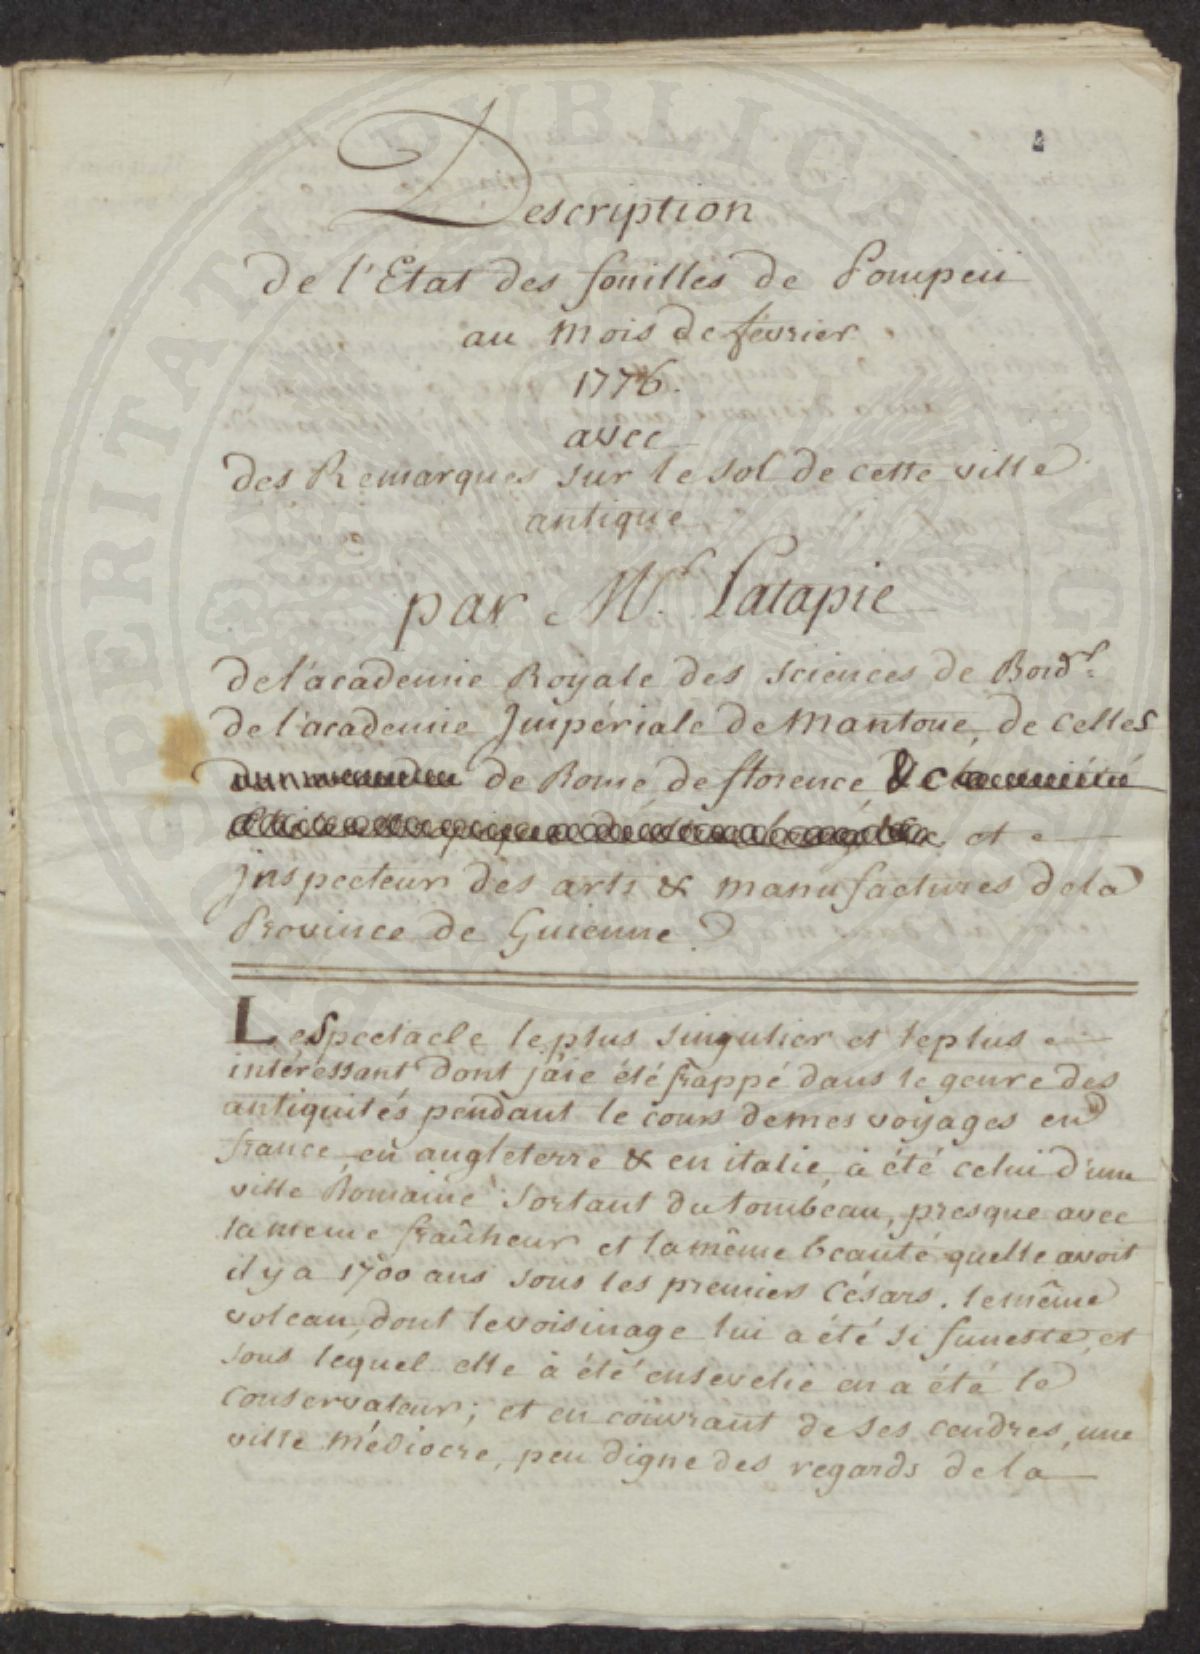 Description
de l'Etat des fouilles de Pompeii
au mois de février
1776.
avec
des Remarques sur le sol de cette ville
antique
par Mr. Latapie
de l'academie Royale des sciences de Bordx.
de l'academie Impériale de Mantoue, de celles
de Rome, de florence, &c
et
jnspecteur des arts & manufactures de la
Province de Guienne.
Le Spectacle le plus singulier et le plus
intéressant dont j'aie été frappé dans le genre des
antiquités pendant le cours de mes voyages en
france, en angleterre & en italie, à été celui d'une
ville Romaine sortant du tombeau, presque avec
la meme fraîcheur et la même beauté quelle avoit
il y a 1700 ans sous les premiers Césars. le même
volcan, dont le voisinage lui a été si funeste, et
sous lequel elle à été ensevelie en a été le
conservateur; et en couvrant de ses cendres, une
ville médiocre, peu digne des regards de la